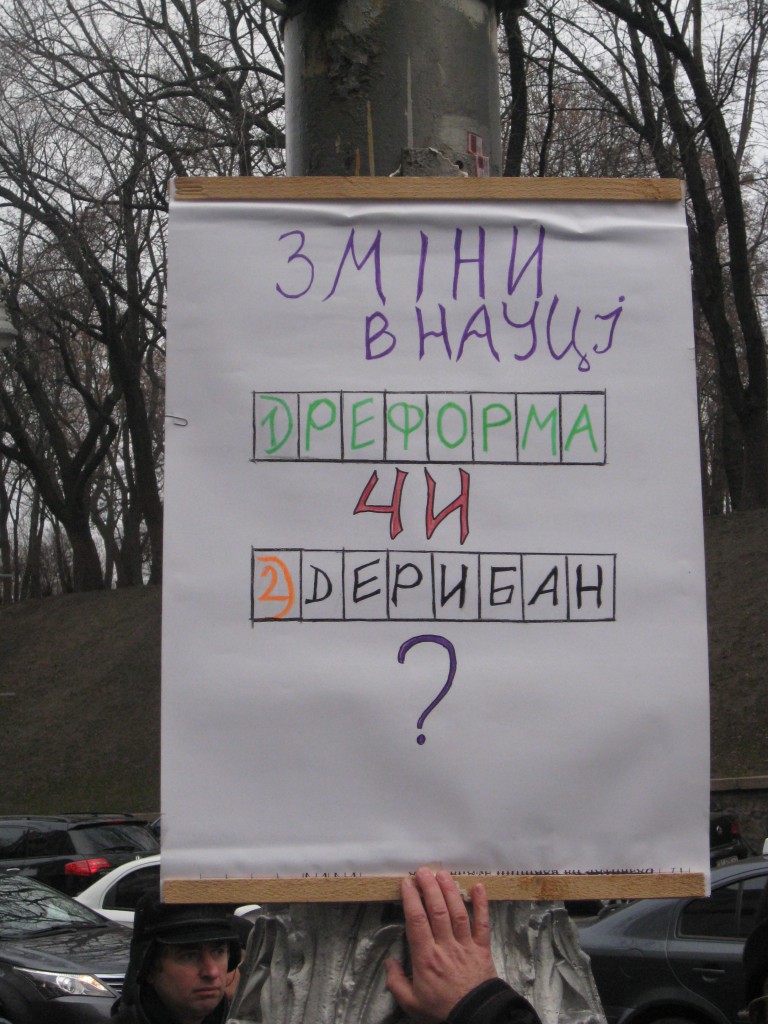 ЗМІНИ
В НАУЦІ
1) РЕФОРМА
ЧИ
2) ДЕРИБАН
?